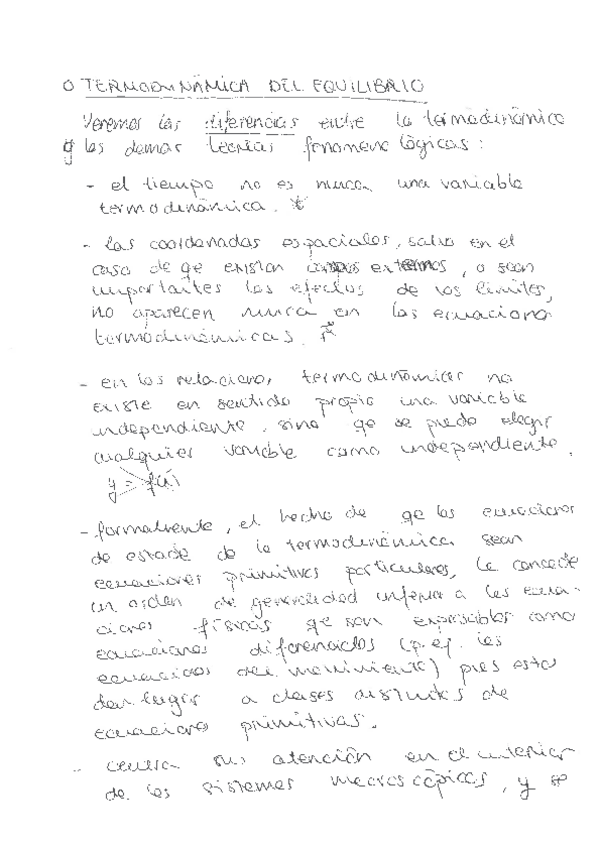 O TERMODINÁMICA DEL EQUILIBRIO
Veremos las diferencias entre la termodinámica
y las demás teorías fenomenológicas:
- el tiempo no es nunca una variable
termodinámica.
- las coordenadas espaciales, salvo en el
caso de qe existan campos externos, o sean
importantes los efectos de los límites,
no aparecen nunca en las ecuaciones
termodinámicas.
- en las relaciones termodinámicas no
existe en sentido propio una variable
independiente, sino qe se puede elegir
cualquier variable como independiente.
y = f(x)
- formalmente, el hecho de qe las ecuaciones
de estado de la termodinámica sean
ecuaciones primitivas particulares, le concede
un orden de generalidad inferior a las ecua-
ciones físicas qe son expresables como
ecuaciones diferenciales (p.ej. las
ecuaciones del movimiento) pues estas
dan lugar a clases distintas de
ecuaciones primitivas.
- centra su atención en el interior
de los sistemas macroscópicos, y se